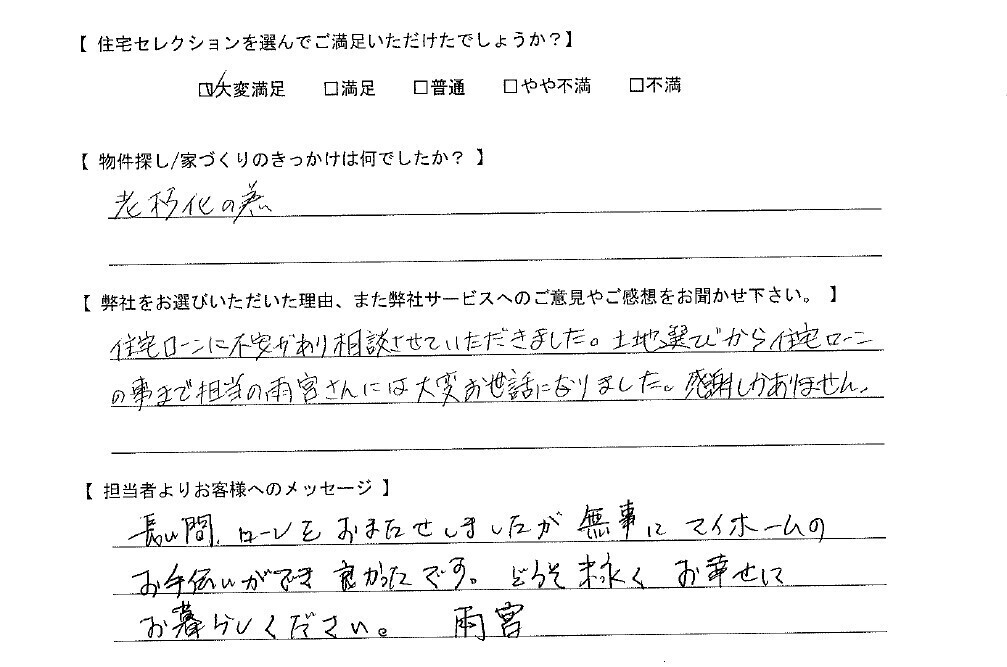 【 住宅セレクションを選んでご満足いただけたでしょうか？】
☑大変満足 □満足 □普通 □やや不満 □不満
【 物件探し/家づくりのきっかけは何でしたか？ 】
老朽化の為
【 弊社をお選びいただいた理由、また弊社サービスへのご意見やご感想をお聞かせ下さい。 】
住宅ローンに不安があり相談させていただきました。土地選びから住宅ローン
の事まで担当の雨宮さんには大変お世話になりました。感謝しかありません。
【 担当者よりお客様へのメッセージ 】
長い間、ローンをおまたせしましたが 無事に マイホームの
お手伝いができ 良かったです。 どうぞ 末永く お幸せに
お暮らしください。 雨宮